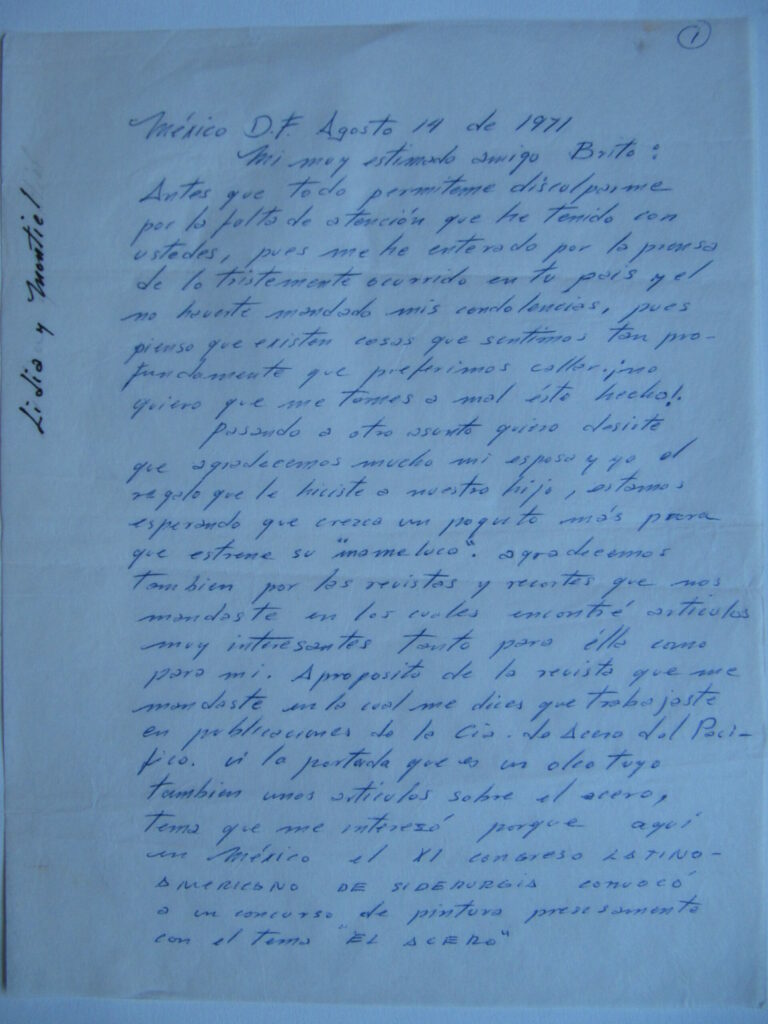 1
México D.F. Agosto 14 de 1971
Mi muy estimado amigo Brito:
Antes que todo permiteme disculparme
por la falta de atención que he tenido con
ustedes, pues me he enterado por la prensa
de lo tristemente ocurrido en tu país y el
no haverte mandado mis condolencias, pues
pienso que existen cosas que sentimos tan pro-
fundamente que preferimos callar. ¡no
quiero que me tomes a mal éste hecho!.
Pasando a otro asunto quiero desirte
que agradecemos mucho mi esposa y yo el
regalo que le hiciste a nuestro hijo, estamos
esperando que crezca un poquito más para
que estrene su "mameluco". agradecemos
tambien por las revistas y recortes que nos
mandaste en los cuales encontré articulos
muy interesantes tanto para élla como
para mi. Aproposito de la revista que me
mandaste en la cual me dices que trabajaste
en publicaciones de la Cia. de Acero del Paci-
fico. vi la portada que es un oleo tuyo
tambien unos artículos sobre el acero,
tema que me interesó porque aquí
en México el XI congreso LATINO-
AMERICANO DE SIDERURGIA convocó
a un concurso de pintura presesamente
con el tema "EL ACERO"
Lidia y Montiel